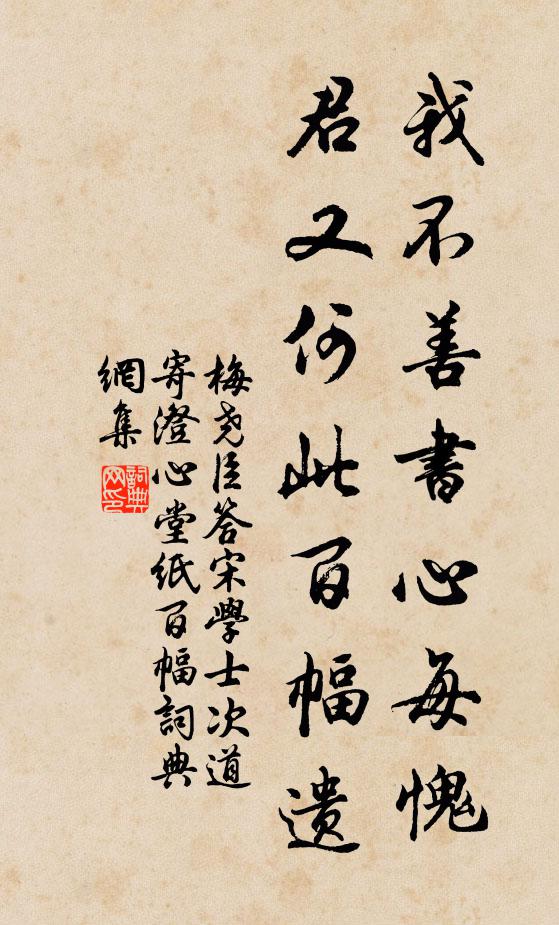 我不善書心每愧
君又何此百幅遺
梅堯臣答宋學士次道
寄澄心堂紙百幅詞典
網集
詞典
网印